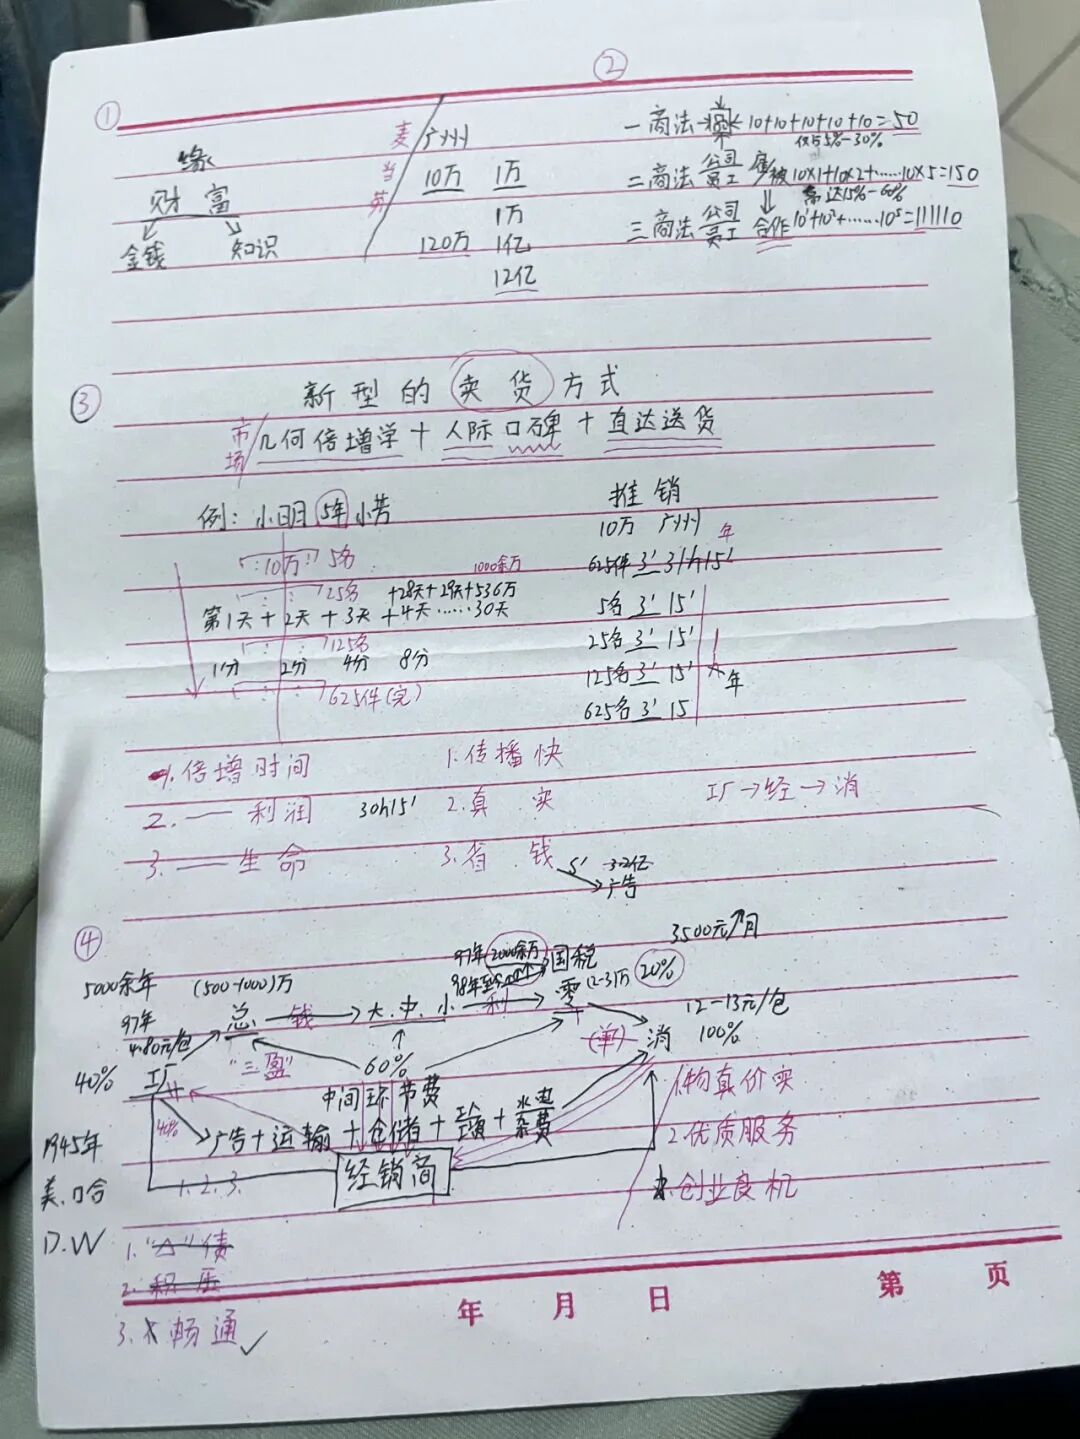 ①
缘
财 富
金钱 知识
麦当劳
广州
10万 1万
1万
120万 1亿
12亿
②
一商法 10+10+10+10+10=50
仅占5%-30%
二商法 公司 员工 雇/被 10×1+10×2+……10×5=150
高达15%-60%
三商法 公司 员工 合作 10¹+10²+……10⁵=111110
③
新型的卖货方式
市场/几何倍增学+人际口碑+直达送货
例: 小明 5年 小芳
10万 5名
1000余万
25名 +28天+29天+536万
第1天+2天+3天+4天……30天
125名
1分 2分 4分 8分
625件(完)
推销
10万 广州 年
625件 3' 31h15'
5名 3' 15'
25名 3' 15'
125名 3' 15'
625名 3' 15
1天 年
1.倍增时间
2.— 利润 30h15'
3.— 生命
1.传播快
2.真 实
3.省 钱
5' 3.2亿
广告
工厂→经→消
④
5000余年 (500-1000)万
97年
4.80元/包
40% 工厂
总 —钱→ 大.中.小 —利→ 零
97年 2000余万
98年至今
国税
(2-3)万 20%
3500元/月
12-13元/包
100%
(单) 消
"三盈"
60%
中间环节费
40%
广告+运输+仓储+ + 水电杂费
经销商
1.2.3.
1945年
美.口合
D.W
1."△"债
2.积压
3.畅通✓
1.物真价实
2.优质服务
3.创业良机
年 月 日 第 页